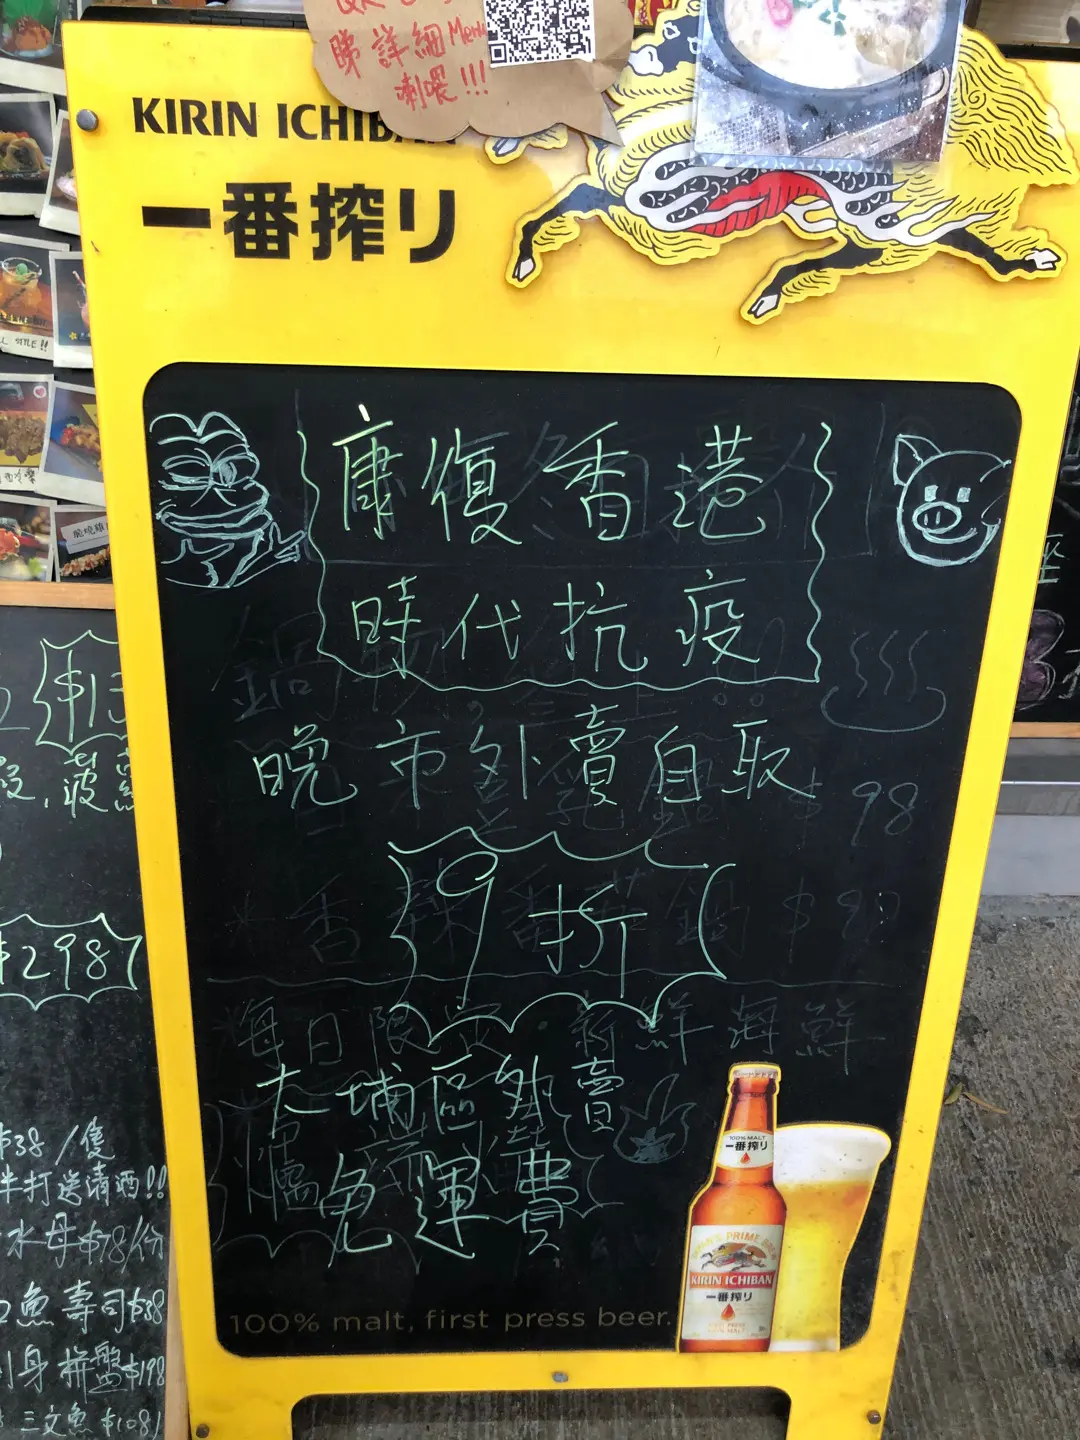 睇詳細Menu
喇喂!!!
KIRIN ICHIBAN
一番搾り
康復香港
時代抗疫
晚市外賣自取
9折
大埔區外賣
免運費
100% malt, first press beer.
100% MALT
一番搾り
KIRIN ICHIBAN
一番搾り
$98
香辣番茄鍋 $9
每日限定·新鮮海鮮
$13
$298
$38/隻
半打送清酒!!
水母$78/份
魚壽司$38
身拼盤$198
三文魚$108